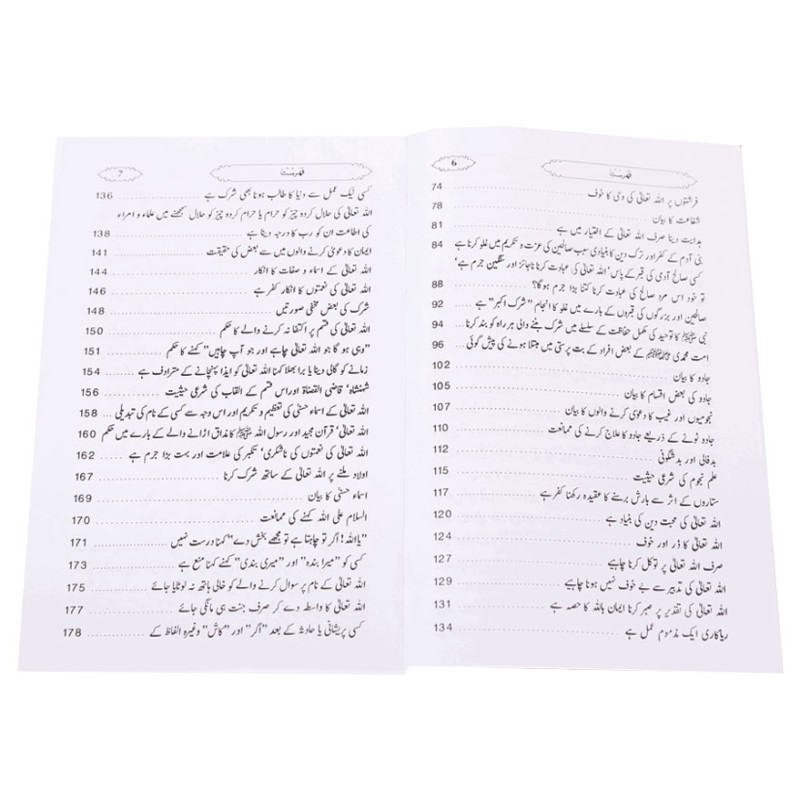 6
فہرست
فرشتوں پر اللہ تعالیٰ کی وحی کا خوف 74
شفاعت کا بیان 78
ہدایت دینا صرف اللہ تعالیٰ کے اختیار میں ہے 81
بنی آدم کے کفر اور ترک دین کا بنیادی سبب صالحین کی عزت و تکریم میں غلو کرنا ہے 84
کسی صالح آدمی کی قبر کے پاس، اللہ تعالیٰ کی عبادت کرنا ناجائز اور سنگین جرم ہے،
تو خود اس مرد صالح کی عبادت کرنا کتنا بڑا جرم ہو گا؟ 88
صالحین اور بزرگوں کی قبروں کے بارے میں غلو کا انجام "شرک اکبر" ہے 92
نبی ﷺ کا توحید کی مکمل حفاظت کے سلسلے میں شرک بننے والی ہر راہ کو بند کرنا 94
امت محمدی ﷺ کے بعض افراد کے بت پرستی میں مبتلا ہونے کی پیش گوئی 96
جادو کا بیان 102
جادو کی بعض اقسام کا بیان 105
نجومیوں اور غیب کا دعویٰ کرنے والوں کا بیان 107
جادو ٹونے کے ذریعے جادو کا علاج کرنے کی ممانعت 110
بدفالی اور بدشگونی 112
علم نجوم کی شرعی حیثیت 115
ستاروں کے اثر سے بارش برسنے کا عقیدہ رکھنا کفر ہے 117
اللہ تعالیٰ کی محبت دین کی بنیاد ہے 120
اللہ تعالیٰ کا ڈر اور خوف 124
صرف اللہ تعالیٰ پر توکل کرنا چاہیے 127
اللہ تعالیٰ کی تدبیر سے بے خوف نہیں ہونا چاہیے 129
اللہ تعالیٰ کی تقدیر پر صبر کرنا ایمان باللہ کا حصہ ہے 131
ریاکاری ایک مذموم عمل ہے 134
7
فہرست
کسی نیک عمل سے دنیا کا طالب ہونا بھی شرک ہے 136
اللہ تعالیٰ کی حلال کردہ چیز کو حرام یا حرام کردہ چیز کو حلال سمجھنے میں علماء و امراء
کی اطاعت ان کو رب کا درجہ دینا ہے 138
ایمان کا دعویٰ کرنے والوں میں سے بعض کی حقیقت 141
اللہ تعالیٰ کے اسماء و صفات کا انکار 144
اللہ تعالیٰ کی نعمتوں کا انکار کفر ہے 146
شرک کی بعض مخفی صورتیں 148
اللہ تعالیٰ کی قسم پر اکتفا نہ کرنے والے کا حکم 150
"وہی ہو گا جو اللہ تعالیٰ چاہے اور جو آپ چاہیں" کہنے کا حکم 151
زمانے کو گالی دینا یا برا بھلا کہنا اللہ تعالیٰ کو ایذا پہنچانے کے مترادف ہے 154
شہنشاہ، قاضی القضاۃ اور اس قسم کے القاب کی شرعی حیثیت 156
اللہ تعالیٰ کے اسماء حسنیٰ کی تعظیم و تکریم اور اس وجہ سے کسی کے نام کی تبدیلی 158
اللہ تعالیٰ، قرآن مجید اور رسول اللہ ﷺ کا مذاق اڑانے والے کے بارے میں حکم 160
اللہ تعالیٰ کی نعمتوں کی ناشکری، تکبر کی علامت اور بہت بڑا جرم ہے 162
اولاد ملنے پر اللہ تعالیٰ کے ساتھ شرک کرنا 167
اسماء حسنیٰ کا بیان 169
السلام علی اللہ کہنے کی ممانعت 170
"یا اللہ! اگر تو چاہتا ہے تو مجھے بخش دے" کہنا درست نہیں 171
کسی کو "میرا بندہ" اور "میری بندی" کہنے کہنا منع ہے 173
اللہ تعالیٰ کے نام پر سوال کرنے والے کو خالی ہاتھ نہ لوٹایا جائے 175
اللہ تعالیٰ کا واسطہ دے کر صرف جنت ہی مانگی جائے 177
کسی پریشانی یا حادثہ کے بعد "اگر" اور "کاش" وغیرہ الفاظ کے 178